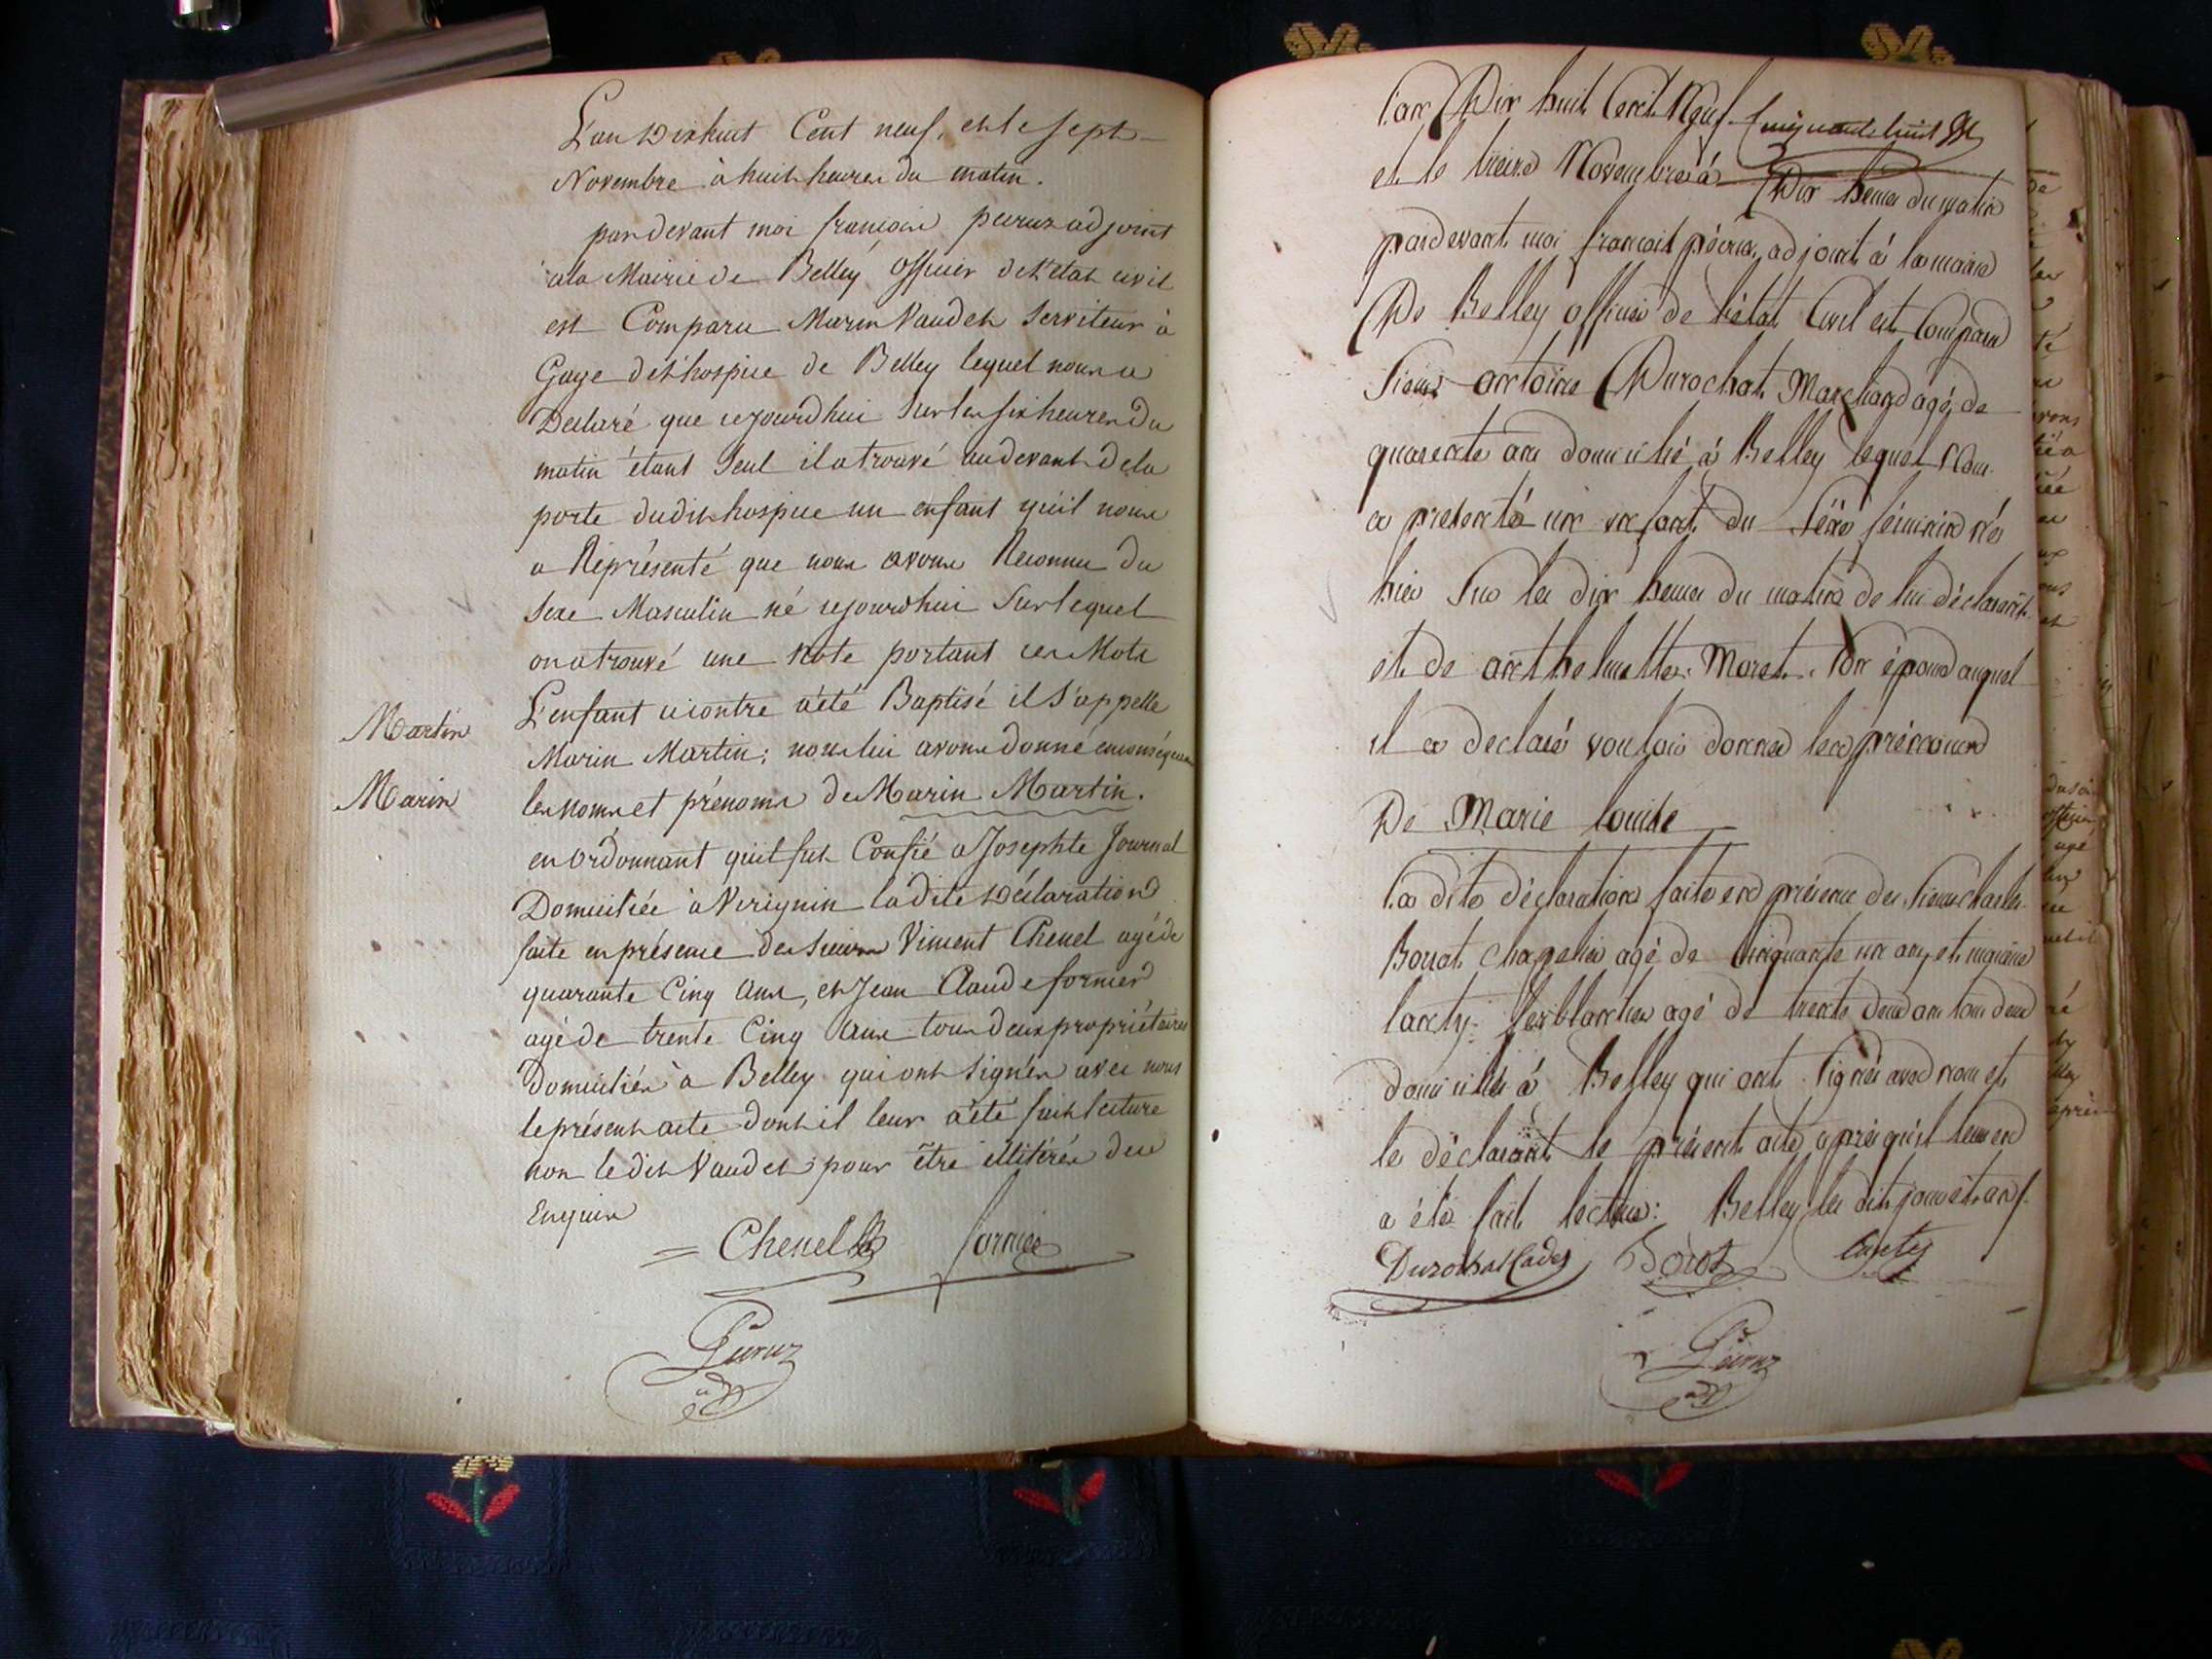 L'an Dixhuit Cent neuf, et le sept
Novembre à huit heures du matin.
pardevant moi françois peeruz adjoint
a la Mairie de Belley officier de l'état civil
est Comparu Marin Vaudet Serviteur à
Gage de l'hospice de Belley lequel nous a
Déclaré que cejourdhui Sur les six heures Du
matin étant Seul il a trouvé au devant de la
porte dudit hospice un enfant qu'il nous
a Réprésenté que nous avons Reconnu Du
Sexe Masculin né cejourdhui Sur lequel
on a trouvé une Note portant ces Mots
L'enfant ci contre a été Baptisé il S'appelle
Martin
Marin Martin; nous lui avons donné en conséquence
Marin
les noms et prénoms de Marin Martin.
en ordonnant qu'il fut Confié a Josephte Journal
Domiciliée à Virignin la dite Déclaration
faite en présence des Sieurs Vincent Chenel agé de
quarante Cinq ans, et Jean Claude fornier
agé de trente Cinq ans tous deux propriétaires
Domiciliés à Belley qui ont signés avec nous
le présent acte dont il leur a été fait lecture
non le dit Vaudet pour être illitérés de ce
Enquis
Chenel fornier
Peeruz
adj
l'an Dix huit Cent Neuf
Cinquante huit
et le treize Novembre à Dix heures du matin
pardevant moi francois péeruz, adjoint à la mairie
De Belley officier de l'état Civil est Comparu
Sieur antoine Durochat Marchand agé de
quarante ans domicilié à Belley lequel Nous
a presenté un enfant du Séxe féminin né
hier Sur les dix heures du matin de lui déclarant
et de anthelmette Moret Son épouse auquel
il a declaré vouloir donner les prénoms
De Marie louise
la dite déclaration faite en présence des Sieurs charles
Borrat Chapelier agé de Cinquante un ans, et
lanty ferblantier agé de trente deux ans tous deux
domiciliés à Belley qui ont Signés avec nous et
le déclarant le présent acte après qu'il leur en
a été fait lecture: Belley les dits jour et an
Durochat Cadet Borat lanty
Péeruz
adj